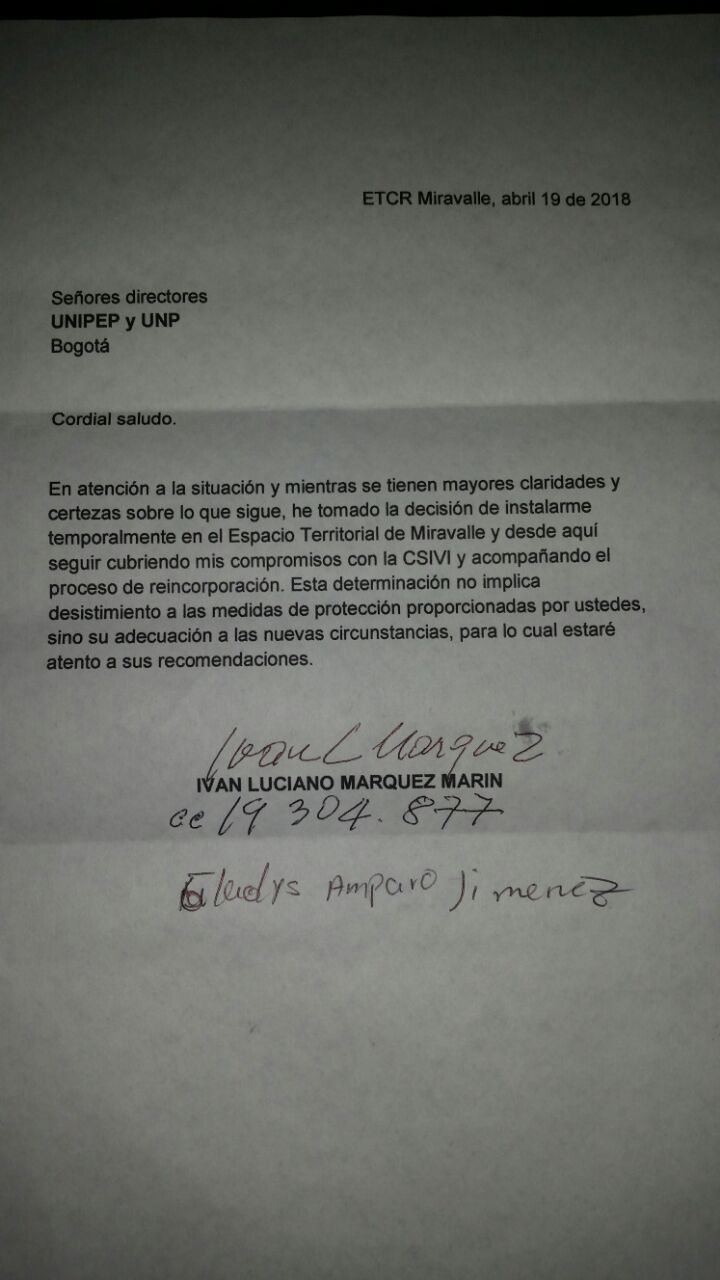 ETCR Miravalle, abril 19 de 2018
Señores directores
UNIPEP y UNP
Bogotá
Cordial saludo.
En atención a la situación y mientras se tienen mayores claridades y
certezas sobre lo que sigue, he tomado la decisión de instalarme
temporalmente en el Espacio Territorial de Miravalle y desde aquí
seguir cubriendo mis compromisos con la CSIVI y acompañando el
proceso de reincorporación. Esta determinación no implica
desistimiento a las medidas de protección proporcionadas por ustedes,
sino su adecuación a las nuevas circunstancias, para lo cual estaré
atento a sus recomendaciones.
Ivan L Marquez
IVAN LUCIANO MARQUEZ MARIN
cc 19 304. 877
Gladys Amparo Jimenez